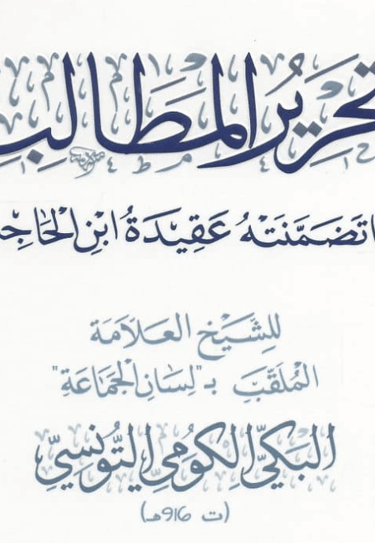 تحرير المطالب
تضمنته عقيدة ابن الحاجب
للشيخ العلامة
الملقب بـ"لسان الجماعة"
البكي الكومي التونسي
(ت 916هـ)